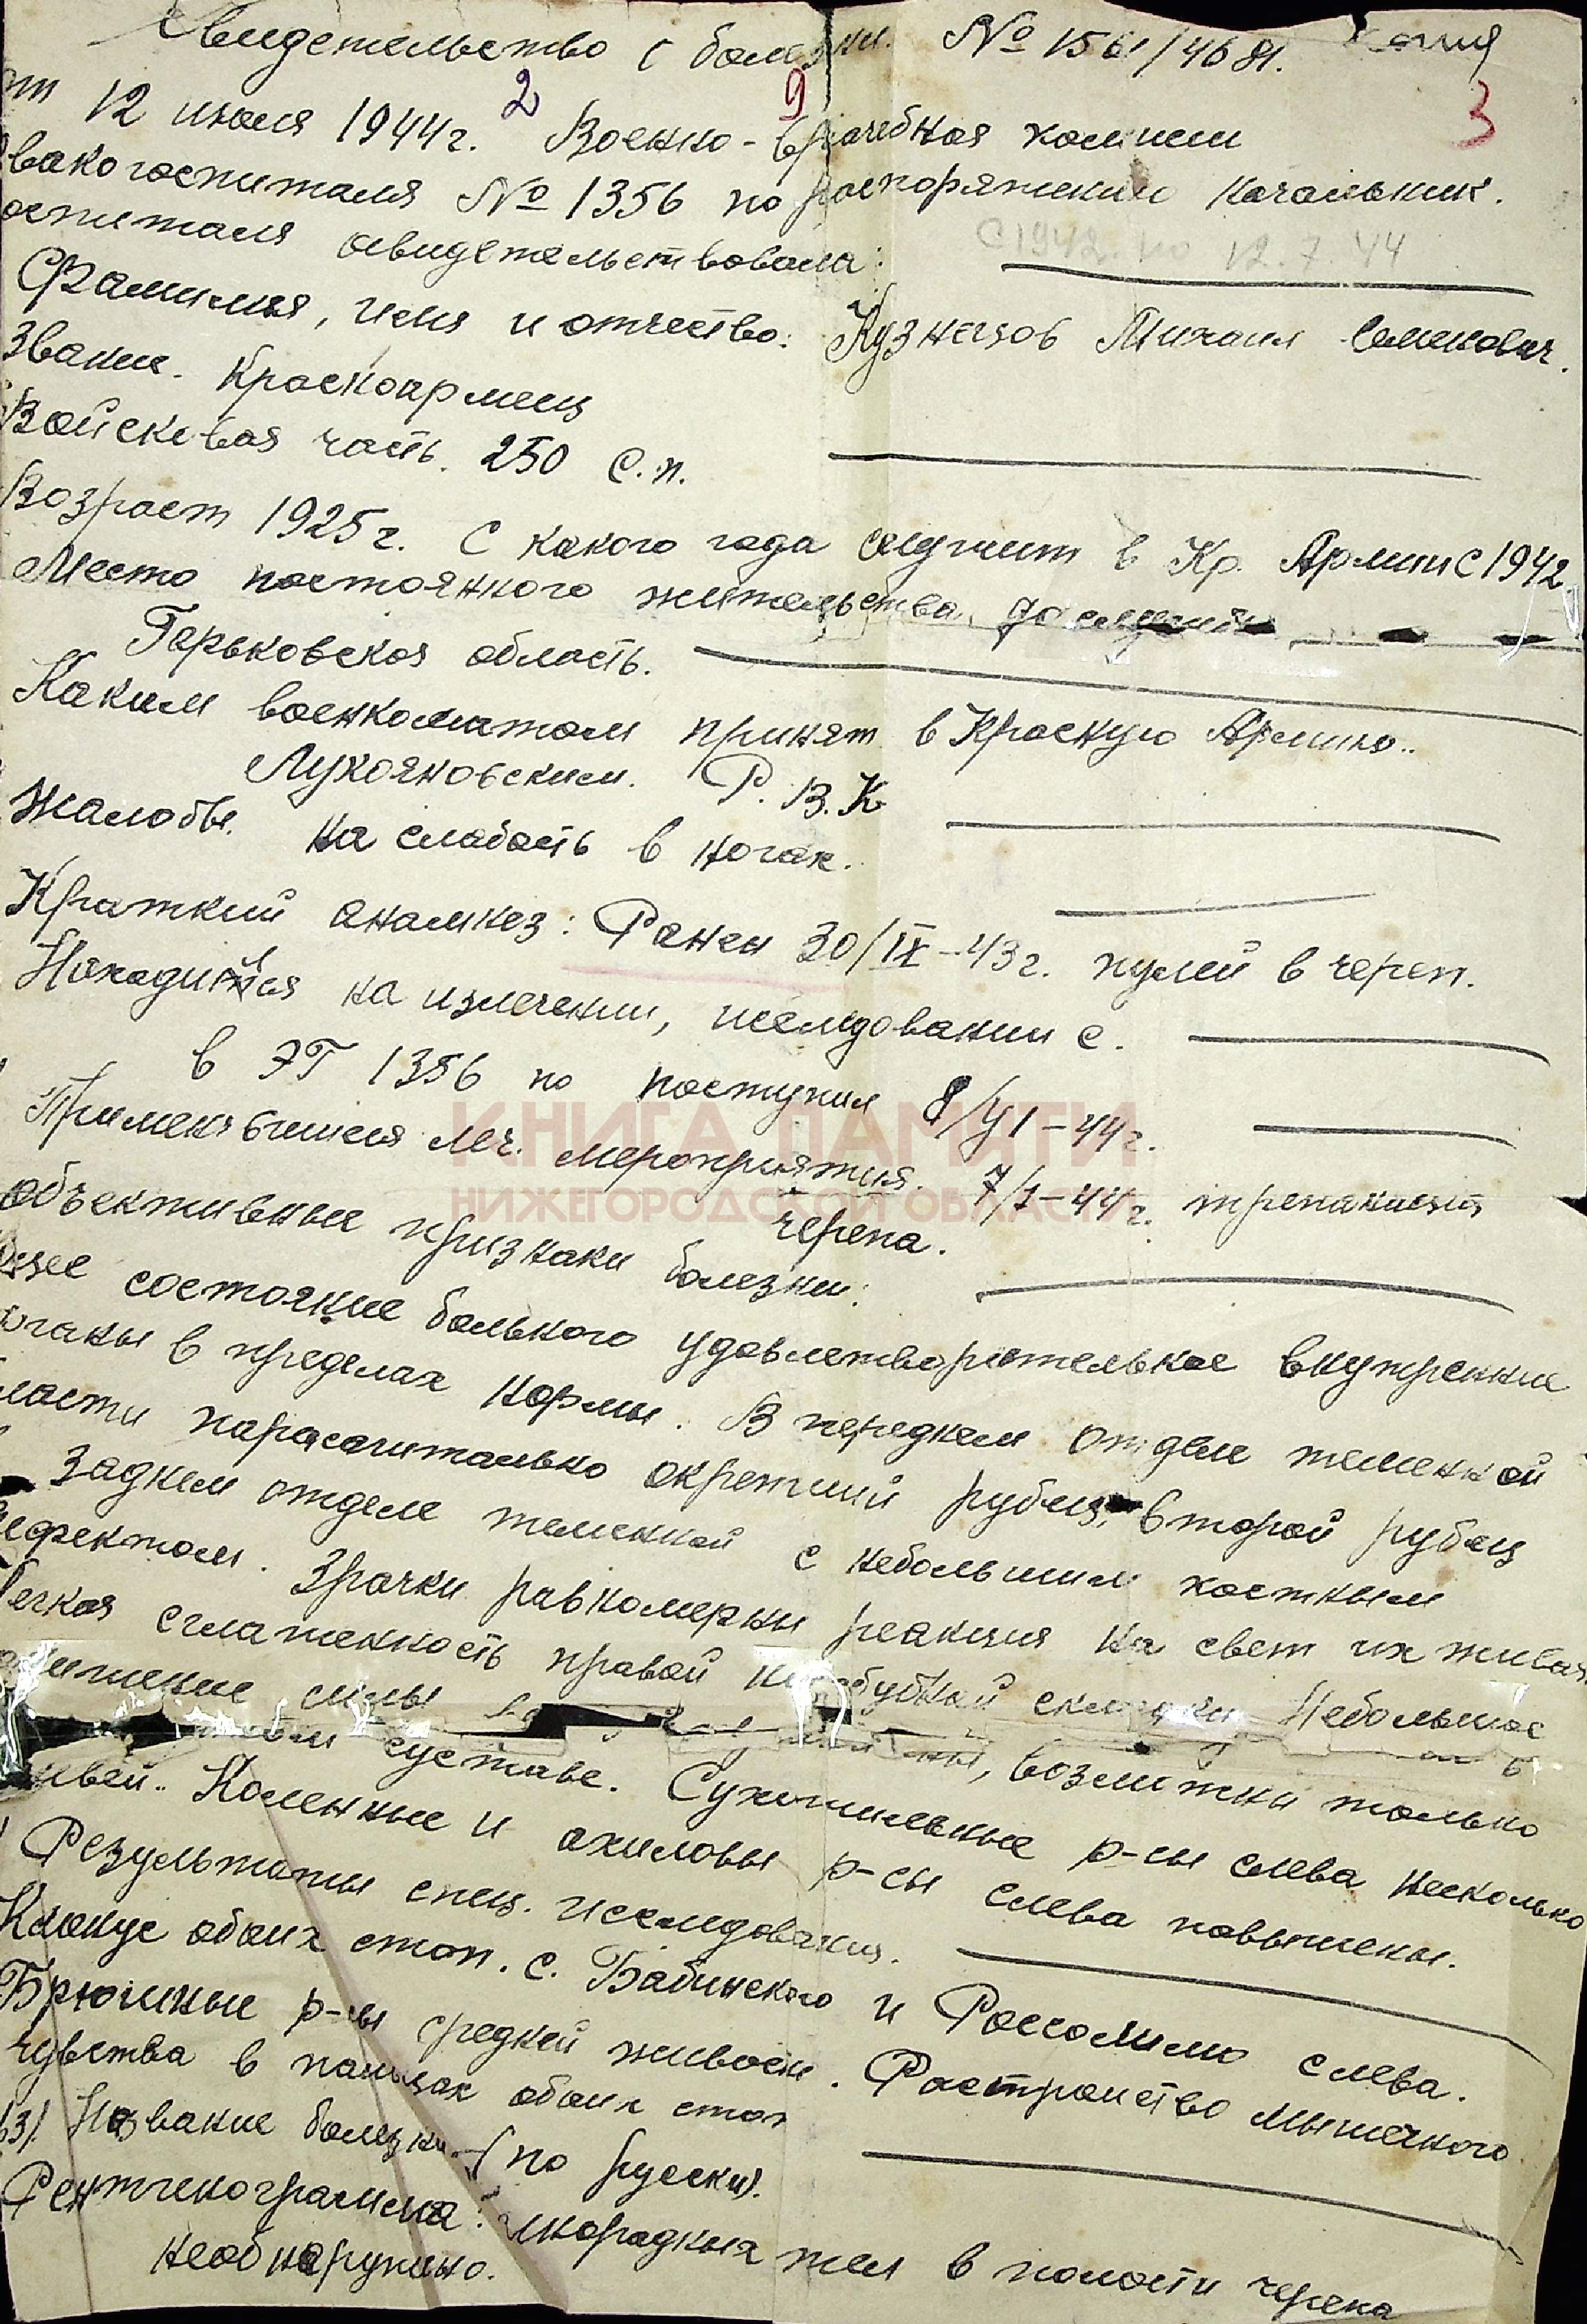 Свидетельство о болезни. № 1561/4681. Копия
от 12 июля 1944г. Военно-врачебная комисси
2 9 3
эвакогоспиталя № 1356 по распоряжению начальник.
госпиталя освидетельствовала:
С 1942. по 12.7.44
Фамилия, имя и отчество: Кузнецов Михаил Семенович.
Звание. Красноармеец
Войсковая часть. 250 с.п.
Возраст 1925г. С какого года служит в Кр. Армии с 1942
Место постоянного жительства,
Горьковская область.
Каким военкоматом принят в Красную Армию..
Лукояновским. Р.В.К
Жалобы. на слабость в ногах.
Краткий анамнез: Ранен 30/IX-43г. пулей в череп.
Находился на излечении, исследовании с.
в ЭГ 1356 по поступил 8/VI-44г.
Применявшиеся леч. мероприятия. 7/I-44г. трепанация
черепа.
КНИГА ПАМЯТИ
НИЖЕГОРОДСКОЙ ОБЛАСТИ
Объективные признаки болезни:
общее состояние больного удовлетворительное внутренние
органы в пределах нормы. В переднем отделе теменной
области парасагитально окрепший рубец, второй рубец
в заднем отделе теменной с небольшим костным
дефектом. Зрачки равномерны реакция на свет их живая.
Легкая сглаженность правой носогубной складки. Небольшое
силы
суставе. возможны только
живей.. Сухожильные р-сы слева несколько
Коленные и ахиловы р-сы слева повышены.
Результаты спец. исследования.
Клонус обоих стоп. с. Бабинского и Россолимо слева.
Брюшные р-сы средней живости. Растройство мышечного
чувства в пальцах обоих стоп
13). Название болезни-(по русски).
Рентгенограмма: инородных тел в полости черепа
необнаружено.